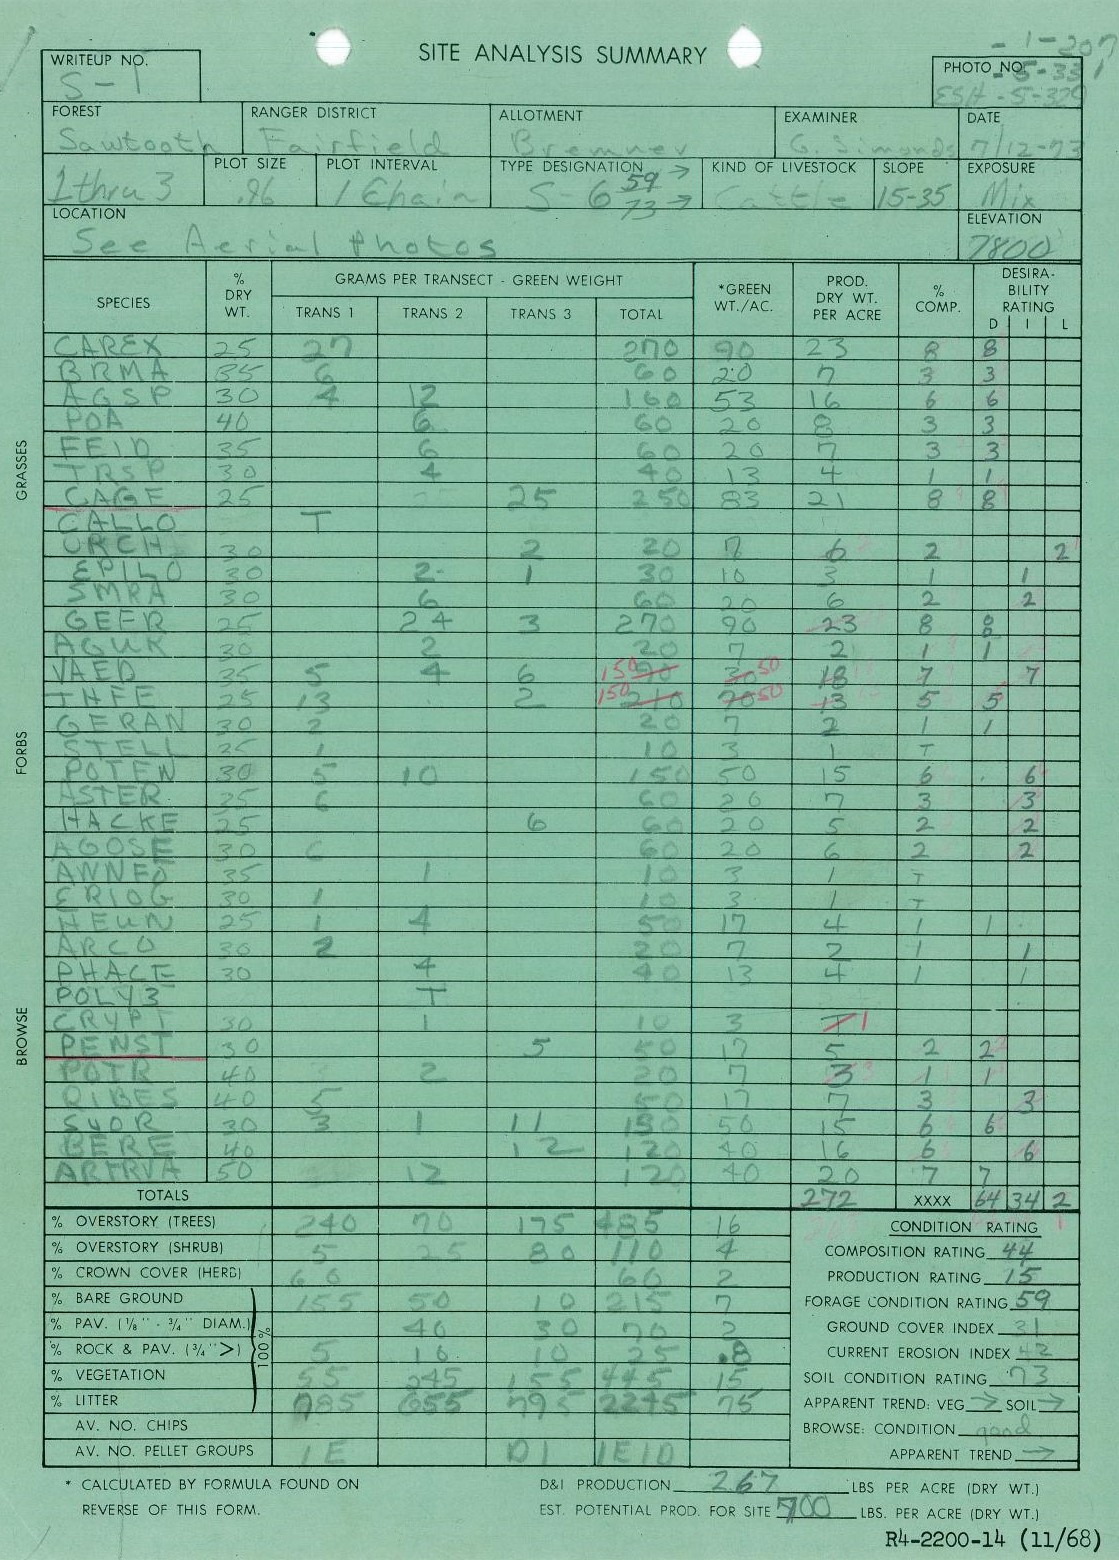 - 1 - 207
SITE ANALYSIS SUMMARY
WRITEUP NO. S-1
PHOTO NO. - 5 - 331
ESH - 5-329
FOREST Sawtooth RANGER DISTRICT Fairfield ALLOTMENT Bremner EXAMINER G. Simonds DATE 7/12-73
1 thru 3 PLOT SIZE .96 PLOT INTERVAL 1 Chain TYPE DESIGNATION S-6 59 → 73 → KIND OF LIVESTOCK Cattle SLOPE 15-35 EXPOSURE Mix
LOCATION See Aerial Photos ELEVATION 7800'
SPECIES % DRY WT. GRAMS PER TRANSECT - GREEN WEIGHT *GREEN WT./AC. PROD. DRY WT. PER ACRE % COMP. DESIRA- BILITY RATING
TRANS 1 TRANS 2 TRANS 3 TOTAL D I L
GRASSES
CAREX 25 27 270 90 23 8 8
BRMA 35 6 60 20 7 3 3
AGSP 30 4 12 160 53 16 6 6
POA 40 6 60 20 8 3 3
FEID 35 6 60 20 7 3 3
TRSP 30 4 40 13 4 1 1
CAGE 25 25 250 83 21 8 8
FORBS
CALLO T
ORCH 30 2 20 7 6 2 2
EPILO 30 2 1 30 10 3 1 1
SMRA 30 6 60 20 6 2 2
GEER 25 24 3 270 90 23 8 8
AGUR 30 2 20 7 2 1 1
VAED 35 5 4 6 150 50 18 7 7
THFE 25 13 2 150 210 70 50 13 5 5
GERAN 30 2 20 7 2 1 1
STELL 25 1 10 3 1 T
POTEN 30 5 10 150 50 15 6 6
ASTER 35 6 60 20 7 3 3
HACKE 25 6 60 20 5 2 2
AGOSE 30 6 60 20 6 2 2
ANNEO 35 1 10 3 1 T
ERIOG 30 1 10 3 1 T
HEUN 25 1 4 50 17 4 1 1
ARCO 30 2 20 7 2 1 1
PHACE 30 4 40 13 4 1 1
POLY3 T
CRYPT 30 1 10 3 T 1
PENST 30 5 50 17 5 2 2
BROWSE
POTR 40 2 20 7 3 1 1
RIBES 40 5 50 17 7 3 3
SYOR 30 3 1 11 150 50 15 6 6
BERE 40 12 120 40 16 6 6
ARTRVA 50 12 120 40 20 7 7
TOTALS 272 XXXX 64 34 2
% OVERSTORY (TREES) 240 70 175 485 16
% OVERSTORY (SHRUB) 5 25 80 110 4
% CROWN COVER (HERB) 60 60 2
% BARE GROUND 155 50 10 215 7
% PAV. (1/8" - 3/4" DIAM.) 40 30 70 2
% ROCK & PAV. (3/4" >) 5 10 10 25 .8
% VEGETATION 55 245 155 445 15
% LITTER 785 655 795 2245 75
100%
AV. NO. CHIPS
AV. NO. PELLET GROUPS 1E D1 1E1D
CONDITION RATING
COMPOSITION RATING 44
PRODUCTION RATING 15
FORAGE CONDITION RATING 59
GROUND COVER INDEX 31
CURRENT EROSION INDEX 42
SOIL CONDITION RATING 73
APPARENT TREND: VEG → SOIL →
BROWSE: CONDITION good
APPARENT TREND →
* CALCULATED BY FORMULA FOUND ON D&I PRODUCTION 267 LBS PER ACRE (DRY WT.)
REVERSE OF THIS FORM. EST. POTENTIAL PROD. FOR SITE 700 LBS. PER ACRE (DRY WT.)
R4-2200-14 (11/68)